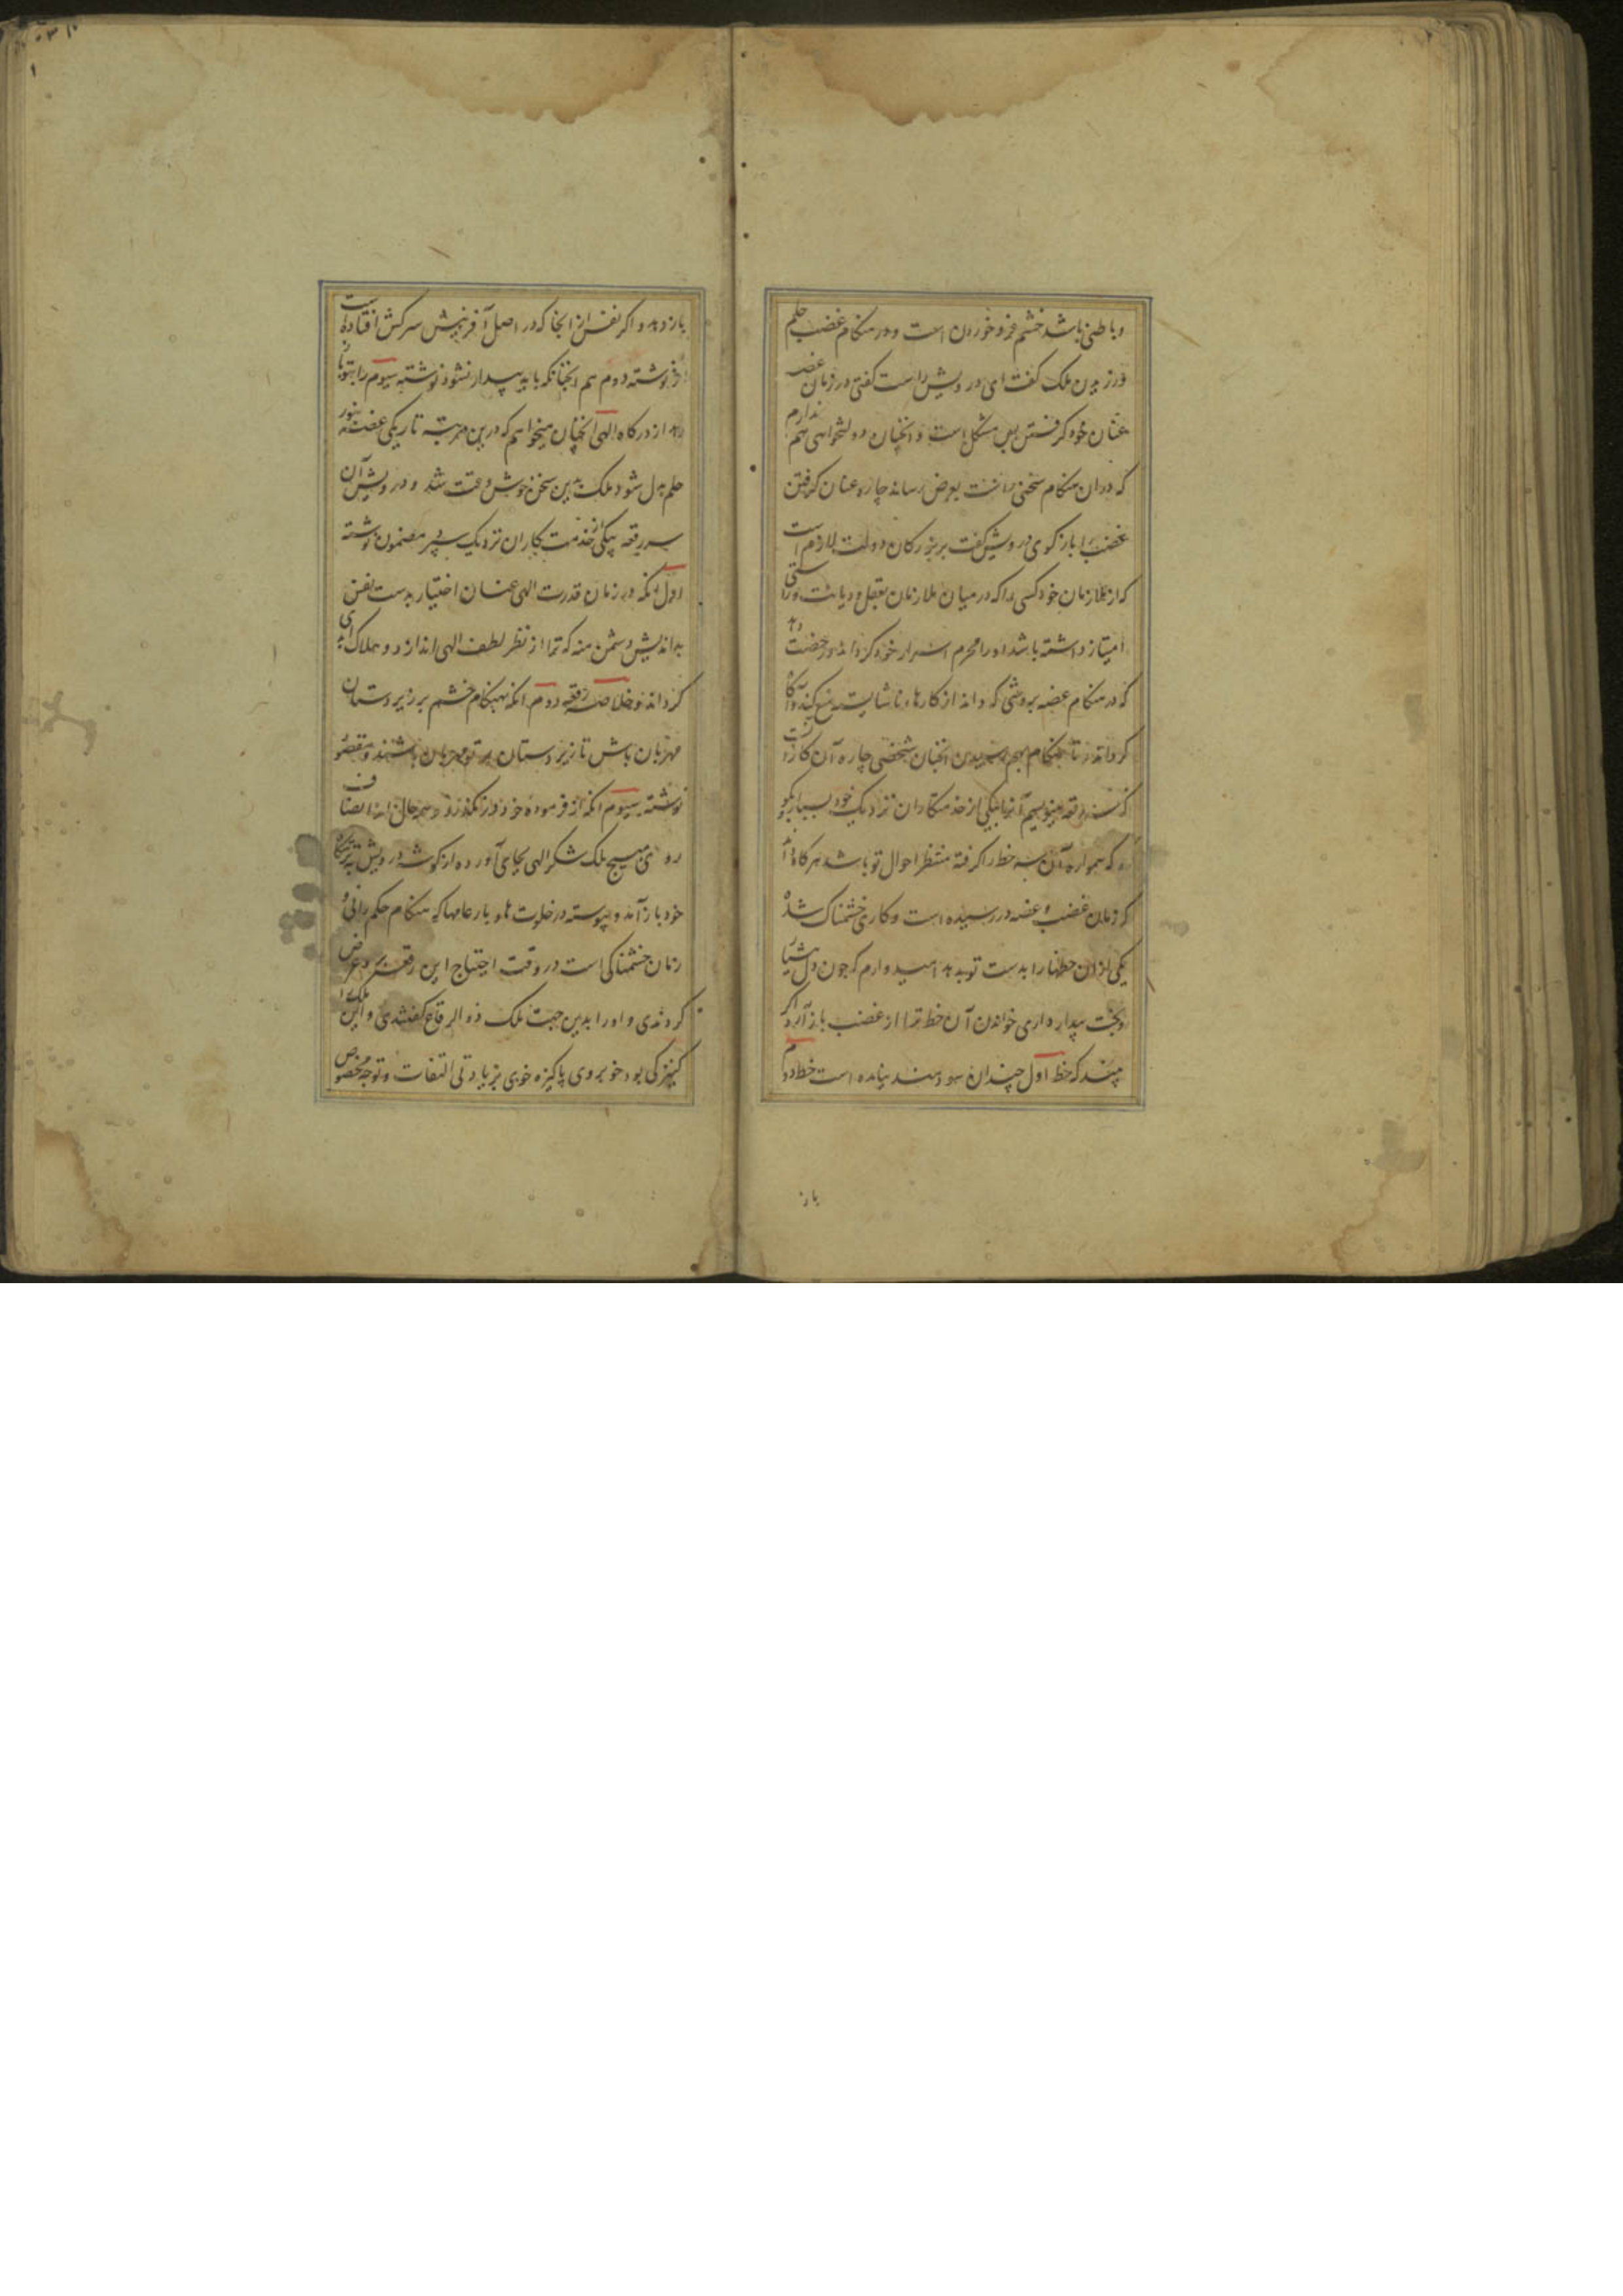 و باطن باشد خشم فرو خوردن است و در هنکام غضب حلم
ورزیدن ملک کفت ای درویش راست کفتی در زمان غضب
عنان خود کرفتن بس مشکل است و انچنان دولتخواهی هم ندارم
که دران هنکام سخنی راست بعرض رساند چاره عنان کرفتن
غضب را باز کوی درویش کفت بر بزرکان دولت لازم است
که از ملازمان خود کسی را که در میان ملازمان بعقل و دیانت و راستی
امتیاز داشته باشد او را محرم اسرار خود کرداند و رخصت دهد
که در هنکام غضب بروشی که داند از کارهاء ناشایست منع کند و آکاه
کرداند تا هنکام بهم رسیدن انچنان شخصی چاره آن کار
که سه رقعه مینویسم آنرا بیکی از خدمتکاران نزدیک خود بسپار بکو
که همواره آن سه خط را کرفته منتظر احوال تو باشد هرکاه
که زمان غضب و غصه در رسیده است و کار خشمناک شده
یکی ازان خطها را بدست تو بدهد امیدوارم که چون دل
و بخت بیدار داری خواندن آن خط ترا از غضب باز آرد اکر
بیند که خط اول چندان سودمند نیامده است خط دوم
باز
باز دهد و اکر نفس از انجا که در اصل آفرینش سرکش افتاده است
از نوشته دوم هم انچنانکه باید بیدار نشود نوشته سیوم را بتو باز
دهد از درکاه الهی انچنان میخواهم که درین مرتبه تاریکی غضب بنور
حلم بدل شود ملک بدین سخن خوش وقت شد و درویش آن
سه رقعه بیکی از خدمت کاران نزدیک سپرد مضمون نوشته
اول انکه در زمان قدرت الهی عنان اختیار بدست نفس
بداندیش دشمن منه که ترا از نظر لطف الهی اندازد و هلاک ابدی
کرداند و خلاصه رقعه دوم انکه بهنکام خشم بر زیردستان
مهربان باش تا زبردستان بر تو مهربان باشند و مقصود
نوشته سیوم انکه از فرموده خرد در نکذرد و بهر حال از انصاف
روی مپیچ ملک شکر الهی بجای آورده از کوشه درویش بتختکاه
خود باز آمد و پیوسته در خلوت ها و بار عامها که هنکام حکم رانی و
زمان خشمناکی است در وقت احتیاج این رقعه عرض
کردندی و او را بدین جهت ملک ذو الرقاع کفتندی و این ملک را
کنیزکی بود خوبروی پاکیزه خوی بزیادتی التفات و توجه مخصوص